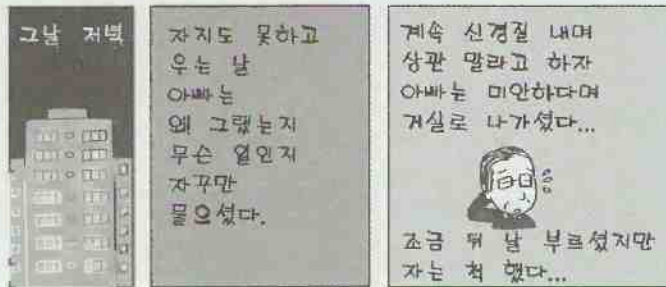 그날 저녁
자지도 못하고
우는 날
아빠는
왜 그랬는지
무슨 일인지
자꾸만
물으셨다.
계속 신경질 내며
상관 말라고 하자
아빠는 미안하다며
거실로 나가셨다...
조금 뒤 날 부르셨지만
자는 척 했다...